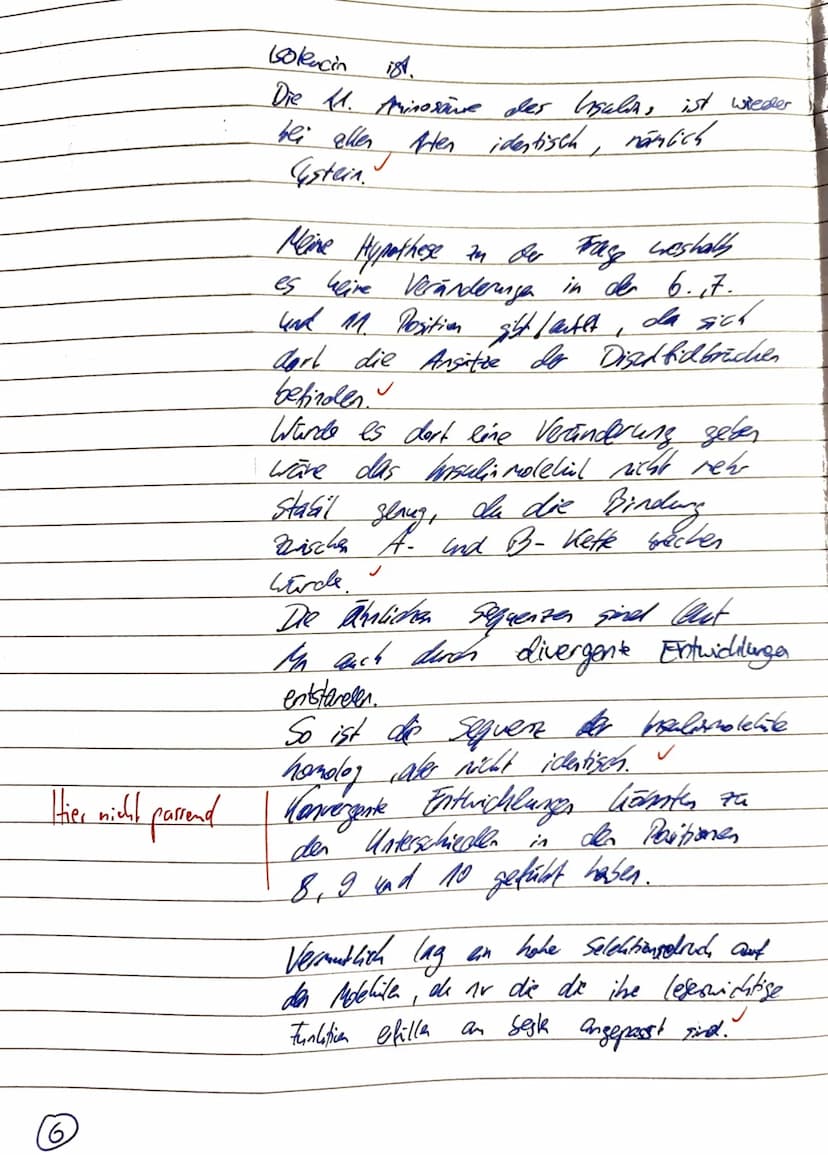 Isoleucin ist.
Die 11. Aminosäure des Insulins ist wieder
bei allen Arten identisch, nämlich
Cystein.
Meine Hypothese zu der Frage weshalb
es keine Veränderungen in der 6., 7.
und 11. Position gibt lautet, da sich
dort die Ansätze der Disulfidbrücken
befinden.
Würde es dort eine Veränderung geben
wäre das Insulinmolekül nicht mehr
stabil genug, da die Bindung
zwischen A- und B-Kette
würde.
Die ähnlichen Sequenzen sind laut
M auch durch divergente Entwicklungen
entstanden.
So ist die Sequenz der Insulinmoleküle
homolog, aber nicht identisch.
Hier nicht passend
Konvergente Entwicklungen könnten zu
den Unterschieden in den Positionen
8, 9 und 10 geführt haben.
Vermutlich lag ein hoher Selektionsdruck auf
den Molekülen, da nur die die ihre lebenswichtige
Funktion erfüllen am besten angepasst sind.
6